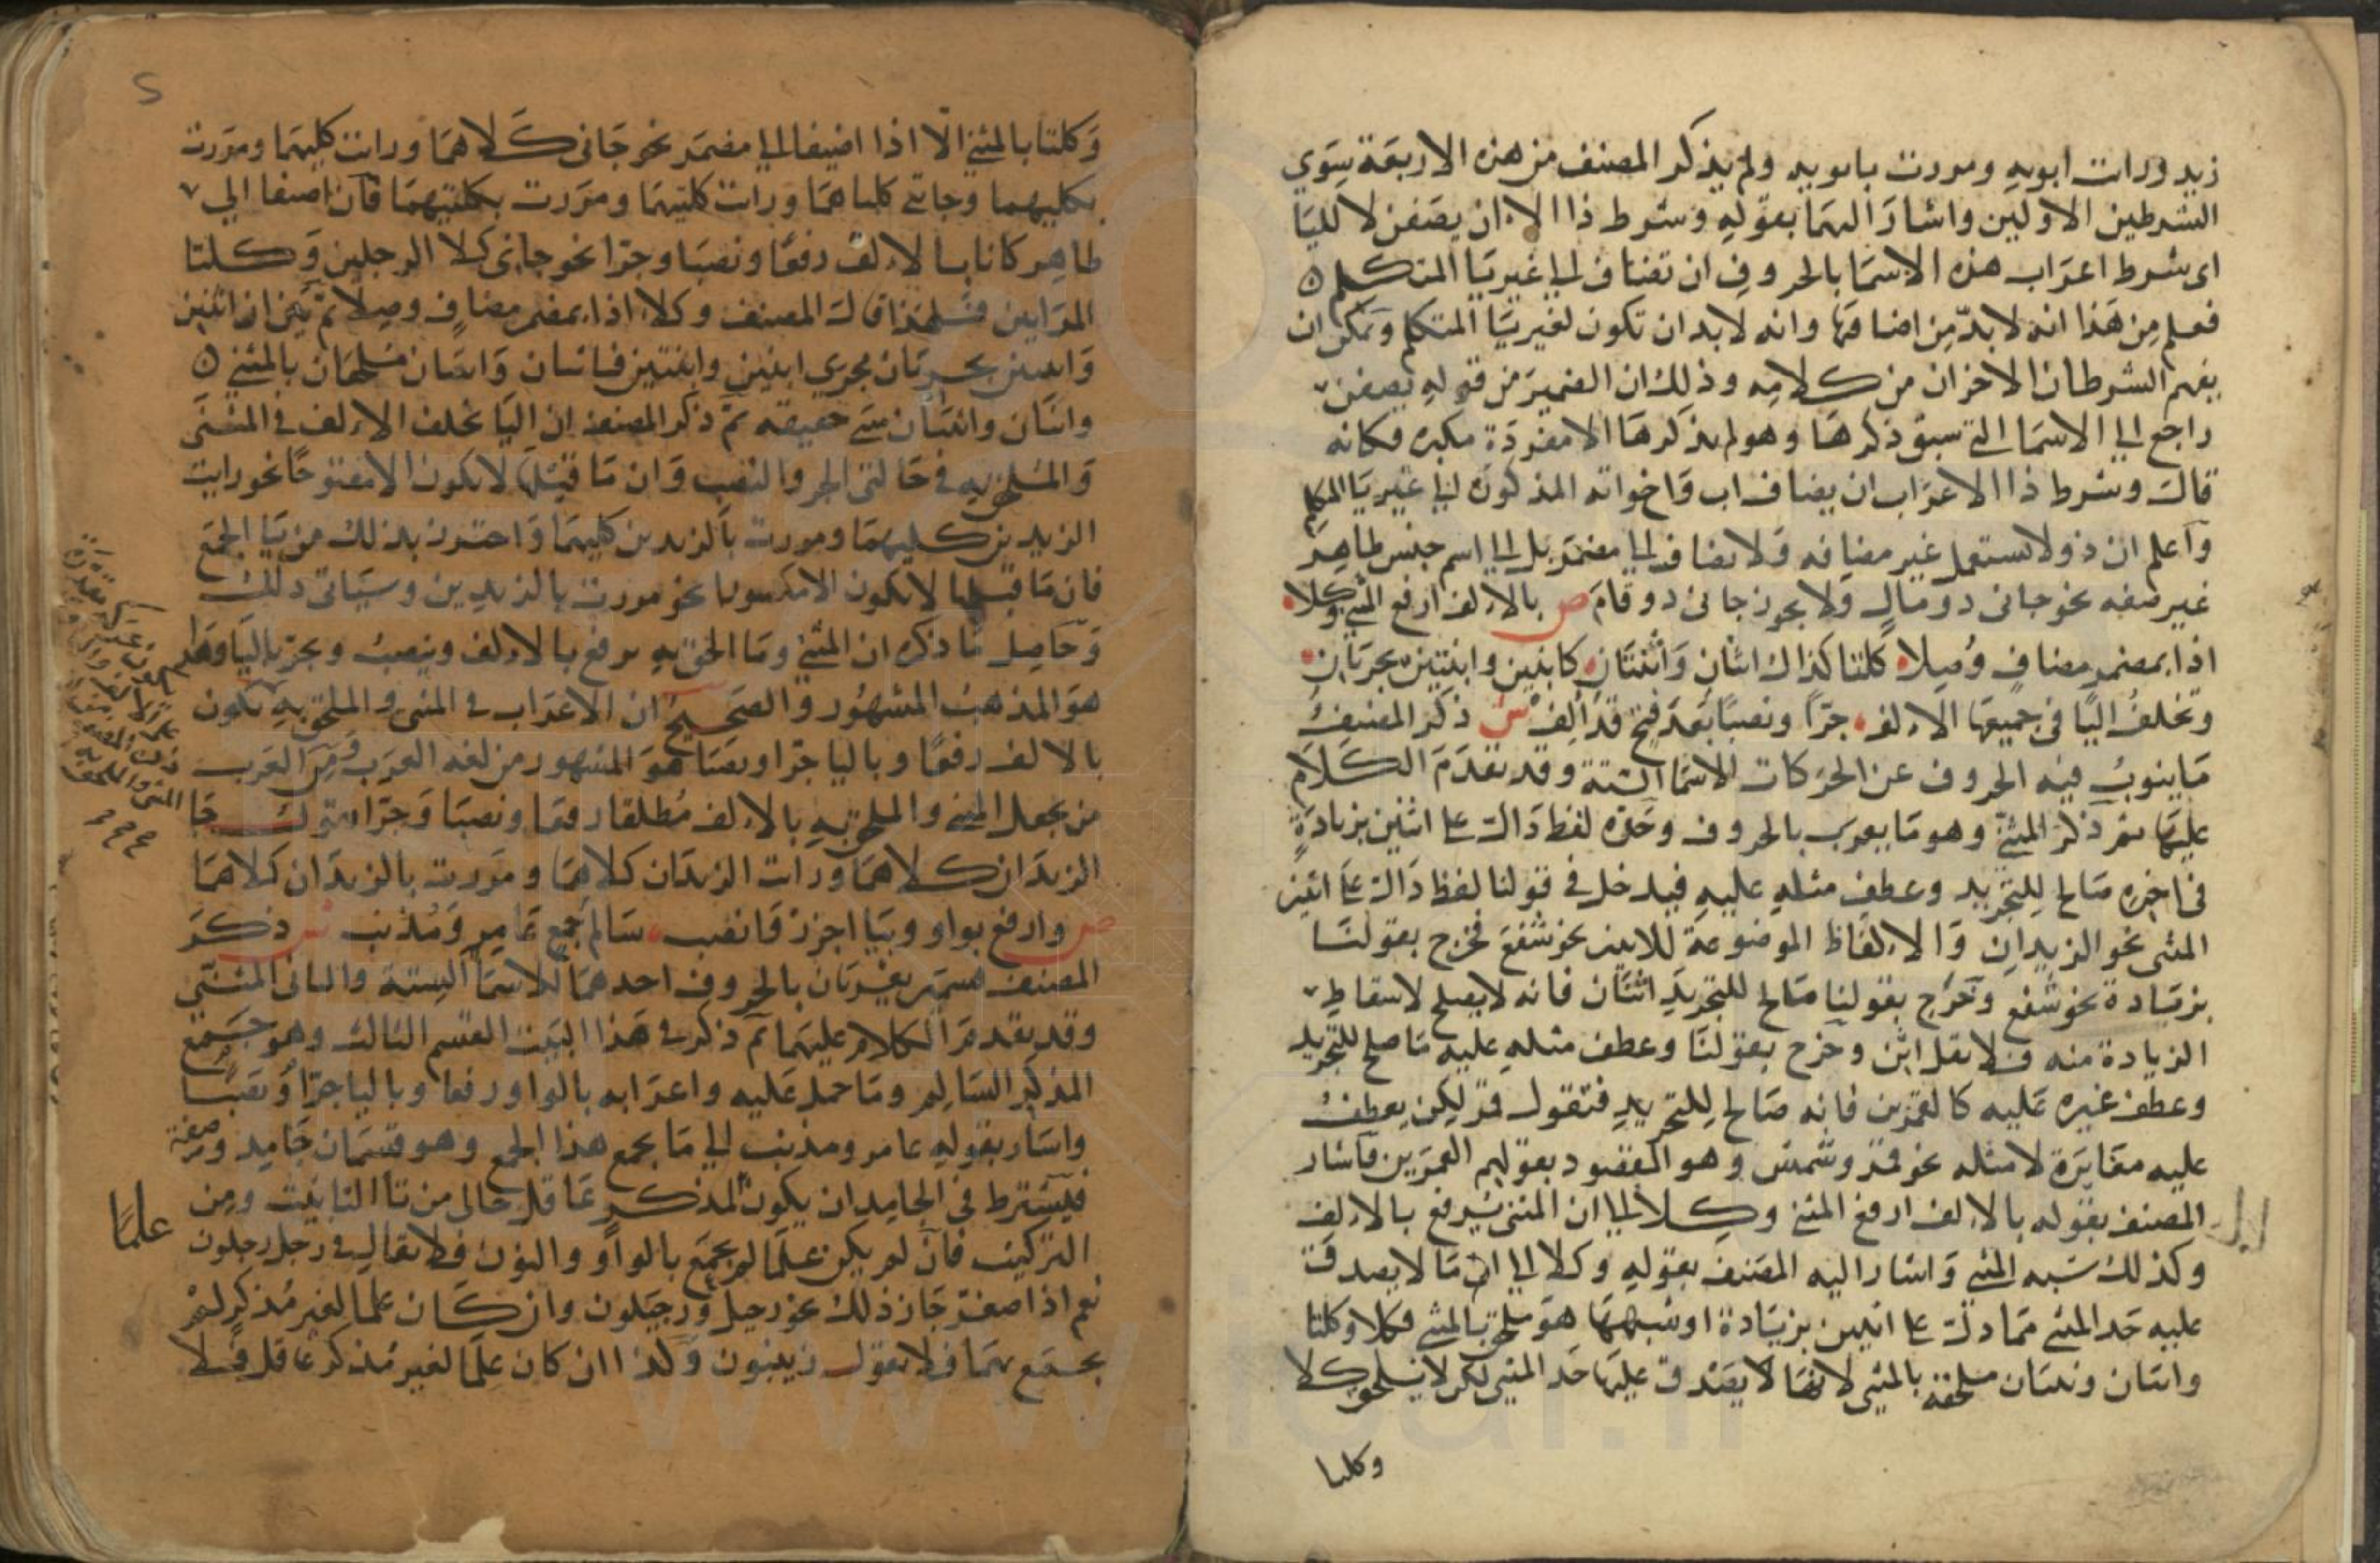 زيد ورايت ابويه ومررت بابويه ولم يذكر المصنف من هذه الاربعة سوي
الشرطين الاولين واشار اليهما بقوله وشرط ذا الاعراب ان يضفن لا لليا
اى شرط اعراب هذه الاسما بالحروف ان تضاف الى غير يا المتكلم
فعلم من هذا انه لا بد من اضافتها وانه لا بد ان تكون لغير يا المتكلم ويمكن ان
يفهم الشرطان الاخران من كلامه وذلك ان الضمير من قوله يضفن
راجع الى الاسما التى سبق ذكرها وهو لم يذكرها الا مفردة مكبره فكانه
قال وشرط ذا الاعراب ان يضاف اب واخواته المذكورة الى غير يا المتكلم
واعلم ان ذو لا تستعمل غير مضافه ولا تضاف الى مضمر بل الى اسم جنس ظاهر
غير صفه نحو جانى ذو مال ولا يجوز جانى ذو قام ص بالالف ارفع المثنى وكلا
اذا بمضمر مضاف وصلا كلتا كذاك اثنان واثنتان كابنين وابنتين يجريان
وتخلف اليا فى جميعها الالف جرا ونصبا بعد فتح قد الف ش ذكر المصنف
ما ينوب فيه الحروف عن الحركات الاسما الستة وقد تقدم الكلام
عليها ثم ذكر المثنى وهو ما يعرب بالحروف وحده لفظ دال على اثنين بزيادة
فى اخره صالح للتجريد وعطف مثله عليه فيدخل فى قولنا لفظ دال على اثنين
المثنى نحو الزيدان والالفاظ الموضوعة للاثنين نحو شفع فخرج بقولنا
بزيادة نحو شفع وخرج بقولنا صالح للتجريد اثنان فانه لا يصلح لاسقاط
الزيادة منه فلا تقل اثن وخرج بقولنا وعطف مثله عليه ما صلح للتجريد
وعطف غيره عليه كالقمرين فانه صالح للتجريد فتقول قمر لكن يعطف
عليه مغايرة لا مثله نحو قمر وشمس وهو المقصود بقولهم القمرين فاشار
المصنف بقوله بالالف ارفع المثنى وكلا الى ان المثنى يرفع بالالف
وكذلك شبه المثنى واشار اليه المصنف بقوله وكلا الى ان ما لا يصدق
عليه حد المثنى مما دل على اثنين بزيادة او شبهها هو ملحق بالمثنى فكلا وكلتا
واثنان وثنتان ملحقة بالمثنى لانها لا يصدق عليها حد المثنى لكن لا يلحق كلا
وكلتا
وكلتا بالمثنى الا اذا اضيفا الى مضمر نحو جانى كلاهما ورايت كليهما ومررت
بكليهما وجاتنى كلتاهما ورايت كلتيهما ومررت بكلتيهما فان اضيفا الى
ظاهر كانا بالالف رفعا ونصبا وجرا نحو جانى كلا الرجلين وكلتا
المراتين فلهذا قال المصنف وكلا اذا بمضمر مضاف وصلا ثم بين ان اثنين
واثنتين يجريان مجرى ابنين وابنتين فاثنان واثنتان ملحقان بالمثنى
وابنان وابنتان مثنى حقيقه ثم ذكر المصنف ان اليا تخلف الالف فى المثنى
والملحق به فى حالتى الجر والنصب وان ما قبلها لا يكون الا مفتوحا نحو رايت
الزيدين كليهما ومررت بالزيدين كليهما واحترز بذلك من يا الجمع
فان ما قبلها لا يكون الا مكسورا نحو مررت بالزيدين وسياتى ذلك
وحاصل ما ذكره ان المثنى وما الحق به يرفع بالالف وينصب ويجر باليا وهذا
هو المذهب المشهور والصحيح ان الاعراب فى المثنى والملحق به يكون
بالالف رفعا وباليا جرا ونصبا هو المشهور من لغه العرب ومن العرب
من يجعل المثنى والملحق به بالالف مطلقا رفعا ونصبا وجرا فتقول جا
الزيدان كلاهما ورايت الزيدان كلاهما ومررت بالزيدان كلاهما
ص وارفع بواو وبيا اجرر وانصب سالم جمع عامر ومذنب ش ذكر
المصنف قسمين يعربان بالحروف احدهما الاسما الستة والثانى المثنى
وقد تقدم الكلام عليهما ثم ذكر فى هذا البيت القسم الثالث وهو جمع
المذكر السالم وما حمل عليه واعرابه بالواو رفعا وباليا جرا ونصبا
واشار بقوله عامر ومذنب الى ما يجمع هذا الجمع وهو قسمان جامد وصفة
فيشترط فى الجامد ان يكون علما لمذكر عاقل خالى من تا التانيث ومن
التركيب فان لم يكن علما لم يجمع بالواو والنون فلا يقال فى رجل رجلون
نعم اذا صغر جاز ذلك نحو رجيل ورجيلون وان كان علما لغير مذكر لم
يجمع بهما فلا تقول زينبون وكذا ان كان علما لغير مذكر عاقل فلا
علما